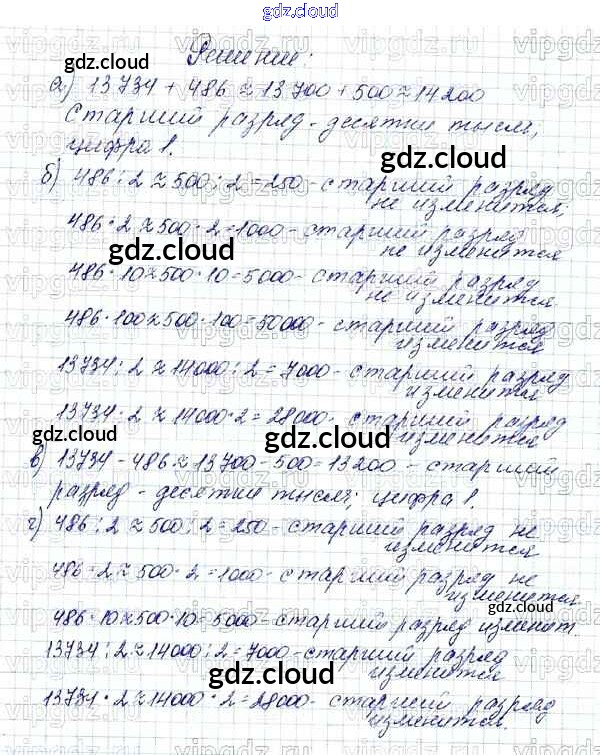 gdz.cloud
Решение:
gdz.cloud
а) 13734 + 486 ≈ 13700 + 500 ≈ 14200
Старший разряд - десятки тысяч,
цифра 1.
gdz.cloud
б) 486 : 2 ≈ 500 : 2 = 250 - старший разряд
не изменится,
486 · 2 ≈ 500 · 2 = 1000 - старший разряд
не изменится
gdz.cloud
486 · 10 ≈ 500 · 10 = 5000 - старший разряд
не изменится
486 · 100 ≈ 500 · 100 = 50000 - старший разряд
изменится
13734 : 2 ≈ 14000 : 2 = 7000 - старший разряд
изменится
13734 · 2 ≈ 14000 · 2 = 28000 - старший разряд
изменится
gdz.cloud
gdz.cloud
в) 13734 - 486 ≈ 13700 - 500 = 13200 - старший
разряд - десятки тысяч; цифра 1.
г) 486 : 2 ≈ 500 : 2 = 250 - старший разряд не
изменится
486 · 2 ≈ 500 · 2 = 1000 - старший разряд не
изменится
gdz.cloud
486 · 10 ≈ 500 · 10 = 5000 - старший разряд изменит.
13734 : 2 ≈ 14000 : 2 = 7000 - старший разряд
изменится
gdz.cloud
13734 · 2 ≈ 14000 · 2 = 28000 - старший разряд
изменится.
gdz.cloud